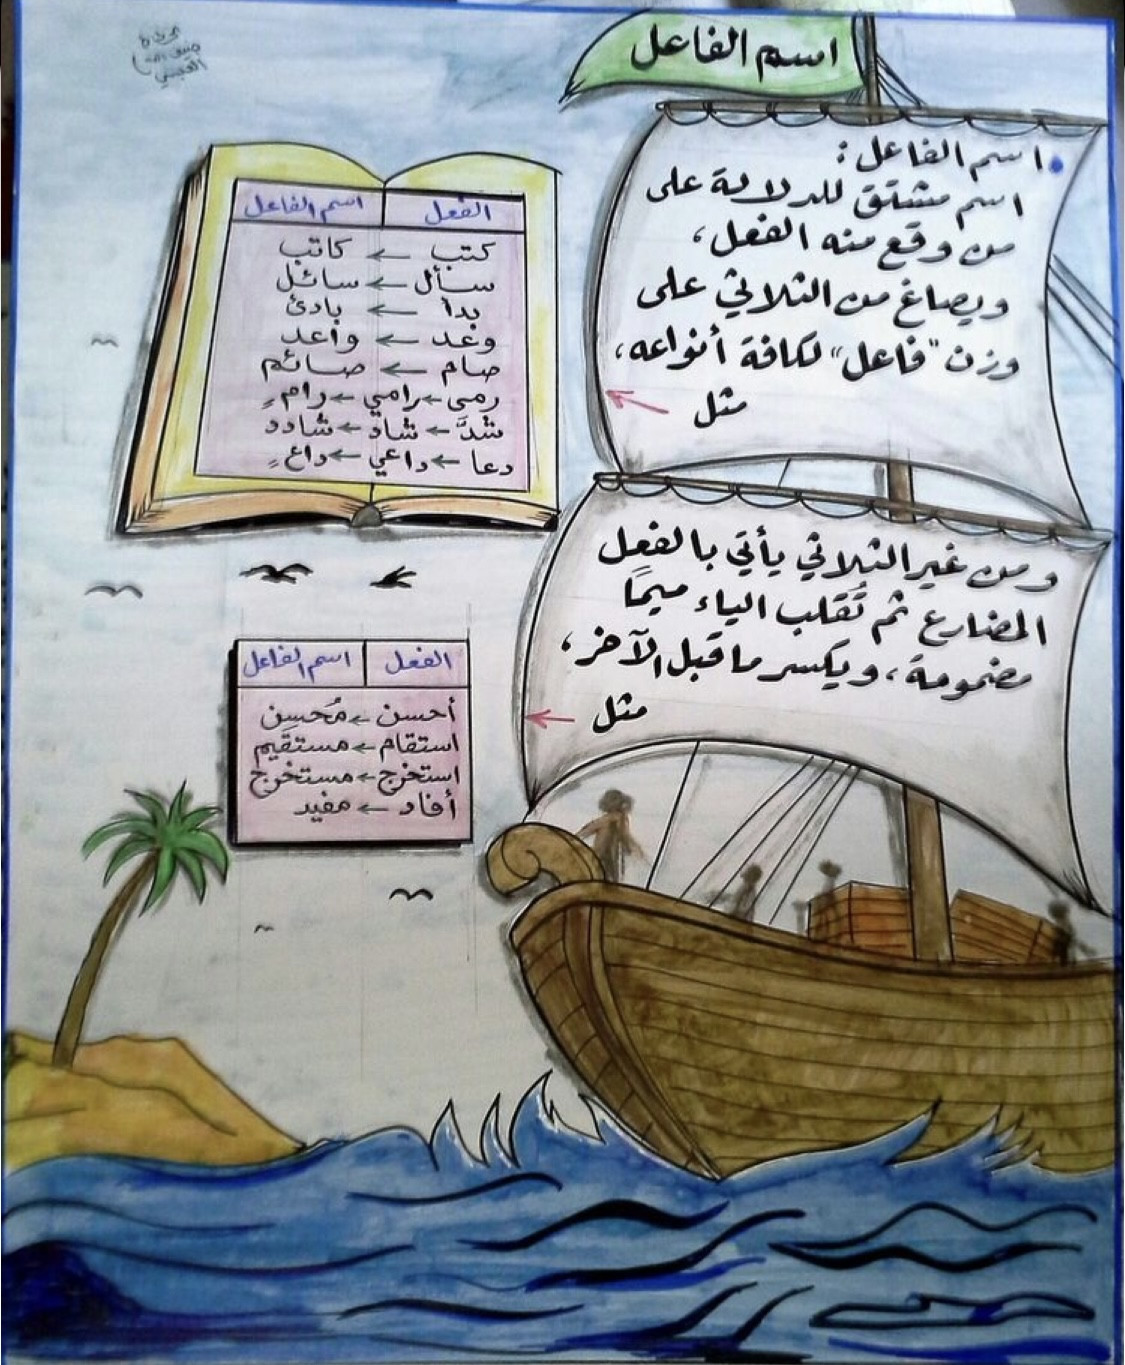 اسم الفاعل
• اسم الفاعل :
اسم مشتق للدلالة على
من وقع منه الفعل،
ويصاغ من الثلاثي على
وزن "فاعل" لكافة أنواعه،
مثل
الفعل اسم الفاعل
كتب ← كاتب
سأل ← سائل
بدأ ← بادئ
وعد ← واعد
صام ← صائم
رمى ← رامي ← رامٍ
شدَّ ← شاد ← شادد
دعا ← داعي ← داعٍ
ومن غير الثلاثي يأتي بالفعل
المضارع ثم تُقلب الياء ميمًا
مضمومة، ويكسر ما قبل الآخر،
مثل
الفعل اسم الفاعل
أحسن ← مُحسِن
استقام ← مستقيم
استخرج ← مستخرج
أفاد ← مفيد